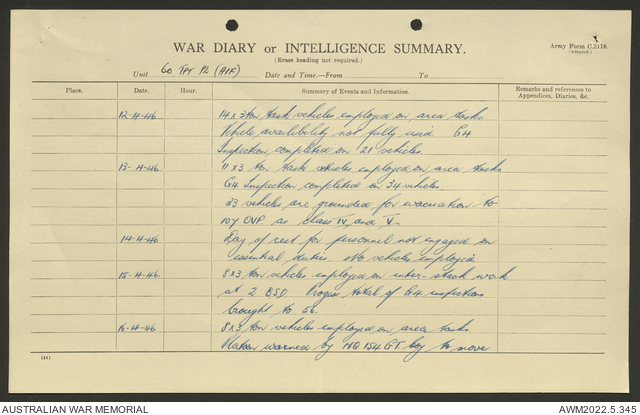 WAR DIARY or INTELLIGENCE SUMMARY.
Army Form C.2118.
(Adapted.)
(Erase heading not required.)
Unit 60 TPT PL (AIF) Date and Time.—From To
Place. Date. Hour. Summary of Events and Information. Remarks and references to Appendices, Diaries, &c.
12-4-46 14 x 3 ton task vehicles employed on area tasks.
Vehicle availability not fully used. G4
Inspection completed on 21 vehicles.
13-4-46 11 x 3 ton task vehicles employed on area tasks
G4 Inspection completed on 34 vehicles.
23 vehicles are grounded for evacuation to
107 OVP. as class IV and V.
14-4-46 Day of rest for personnel not engaged on
essential duties. No vehicles employed
15-4-46. 8 x 3 ton vehicles employed on inter-stack work
at 2 BSD. Progress total of G4 inspections
brought to 56.
16-4-46 8 x 3 ton vehicles employed on area tasks
Platoon warned by HQ 154 G.T. Coy to move
(11)
AUSTRALIAN WAR MEMORIAL
AWM2022.5.345